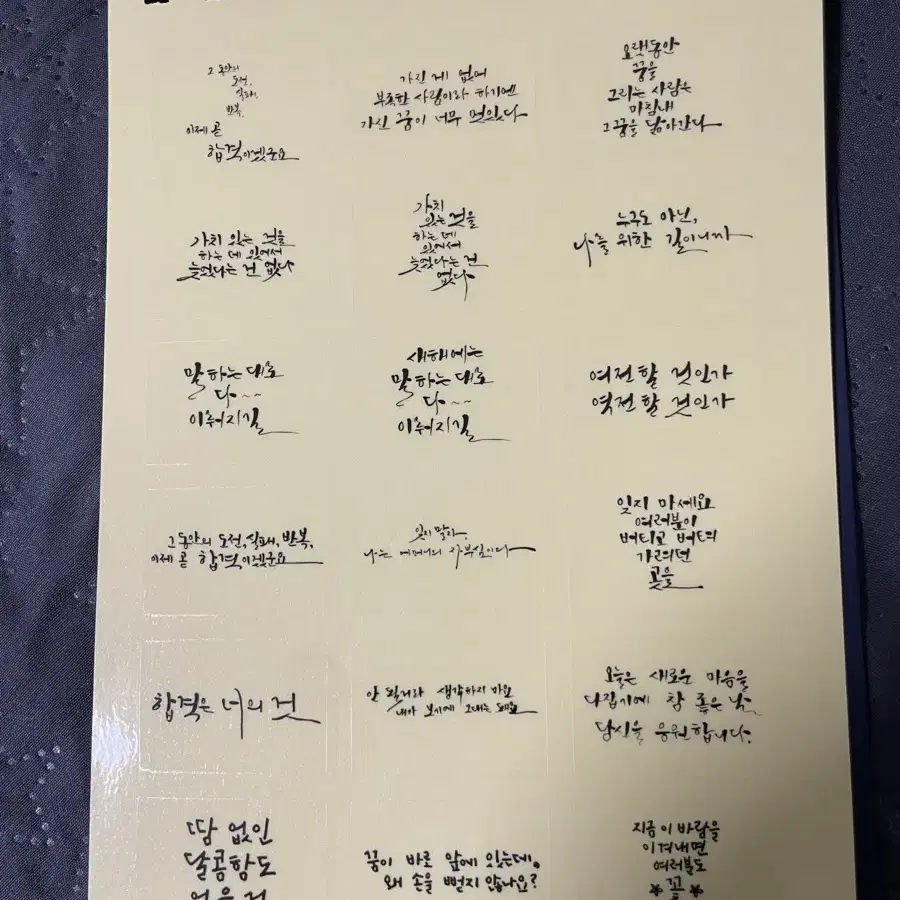 그동안의
도전,
실패,
반복,
이제 곧
합격이겠군요
가진 게 없어
부족한 사람이라 하기엔
가신 꿈이 너무 멋있다
오랫동안
꿈을
그리는 사람은
마침내
그 꿈을 닮아간다
가치 있는 것을
하는 데 있어서
늦었다는 건 없다
가치
있는 것을
하는 데
있어서
늦었다는 건
없다
누구도 아닌,
나를 위한 길이니까
말하는 대로
다~~
이루어지길
새해에는
말하는 대로
다~~
이루어지길
여전할 것인가
역전할 것인가
그동안의 도전, 실패, 반복,
이제 곧 합격이겠군요
잊지 말자,
나는 어머니의 자부심이다
잊지 마세요
여러분이
버티고 버티의
가르의면
곳을
합격은 너의 것
안 될거라 생각하지 마요
내가 보기에 그대는 돼요
오늘은 새로운 마음을
다집기에 참 좋은 날,
당신을 응원합니다.
땀 없인
달콤함도
꿈이 바로 앞에 있는데,
왜 손을 뻗지 않나요?
지금 이 바람을
이겨내면
여러분도
*꽃*